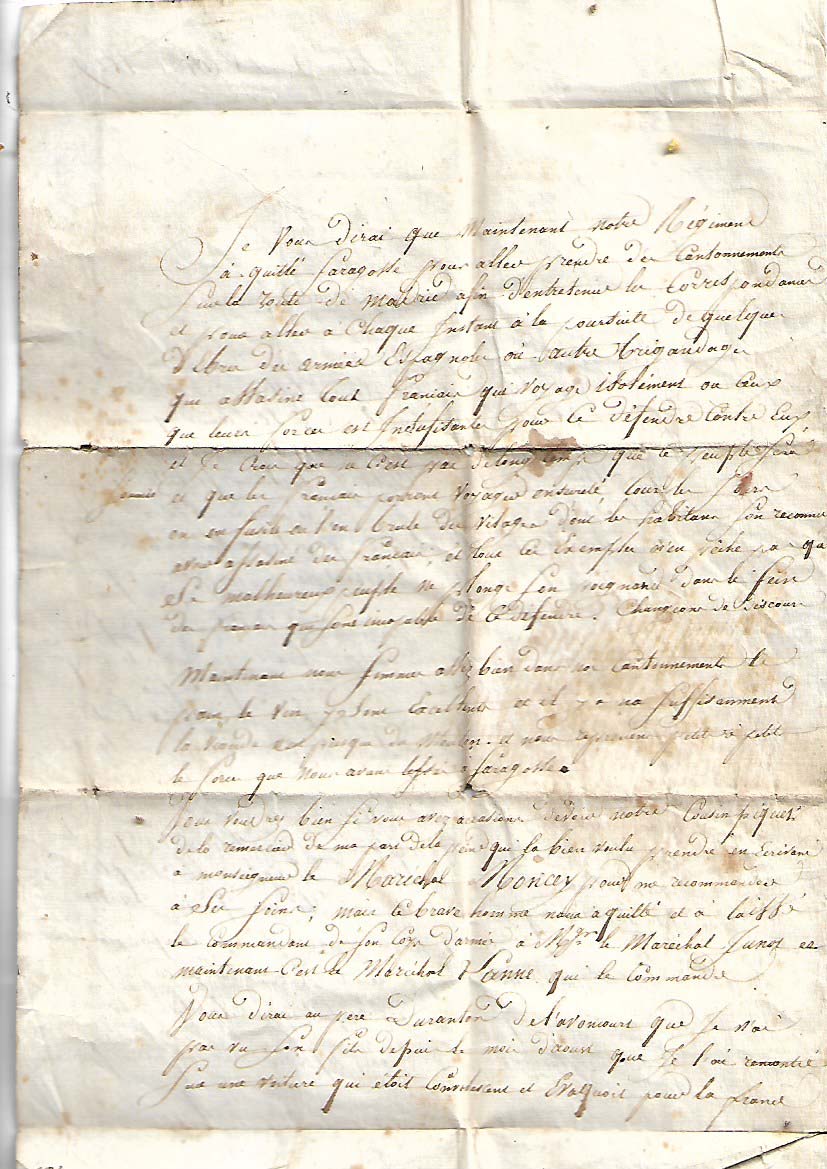 Je Vous dirai que Maintenant notre Régiment
à quitté Saragosse pour aller prendre des Cantonnements
sur la route de Madrid afin d'entretenir la Correspondance
et pour aller a Chaque Instant à la poursuite de quelque
débris des armées Espagnole où autre Brigandage
que assasine tout français qui voyage isolément ou ceux
que leurs force est Insufisante pour ce défendre contre Eux,
et Je Crois que ce n'est pas de longtems que ce peuple sera
soumis et que les français pourront voyager en sureté, tous les jours
on en fusille on en brule des vilages dont les habitans son reconnu
avoir assasiné des français, et tous ces Exemples n'en pêche pas que
Se malheureux peuple ne plonge son poignard dans le sein
des français qui sont incapable de ce défendre. Changeons de discours
Maintenant nous sommes assez bien dans nos cantonnements le
pain le vin y sont Excellents et il y en na suffisamment
la viande est presque du Mouton. et nous reprenons petit à petit
le force que nous avons lessé à Saragosse.
Vous voudrez bien si vous avez occasions de voir notre Cousin piquet
de le remercier de ma part de la peine qui la bien voulu prendre en Ecrivant
a monseigneur le Maréchal Moncey pour me recommander
à Ses soins, mais ce brave homme nous a quitté et a laissé
le commandant de son Corps d'armée à Mgr le Maréchal Junot et
maintenant C'est le Maréchal Lanne qui le Commande
Vous direz au père Duranton de l'avoncourt que Je n'ai
pas vu son fils depuis le mois d'aoust que Je l'ai rencontré
Sur une voiture qui étoit Convalescent et Evaquoit pour la france